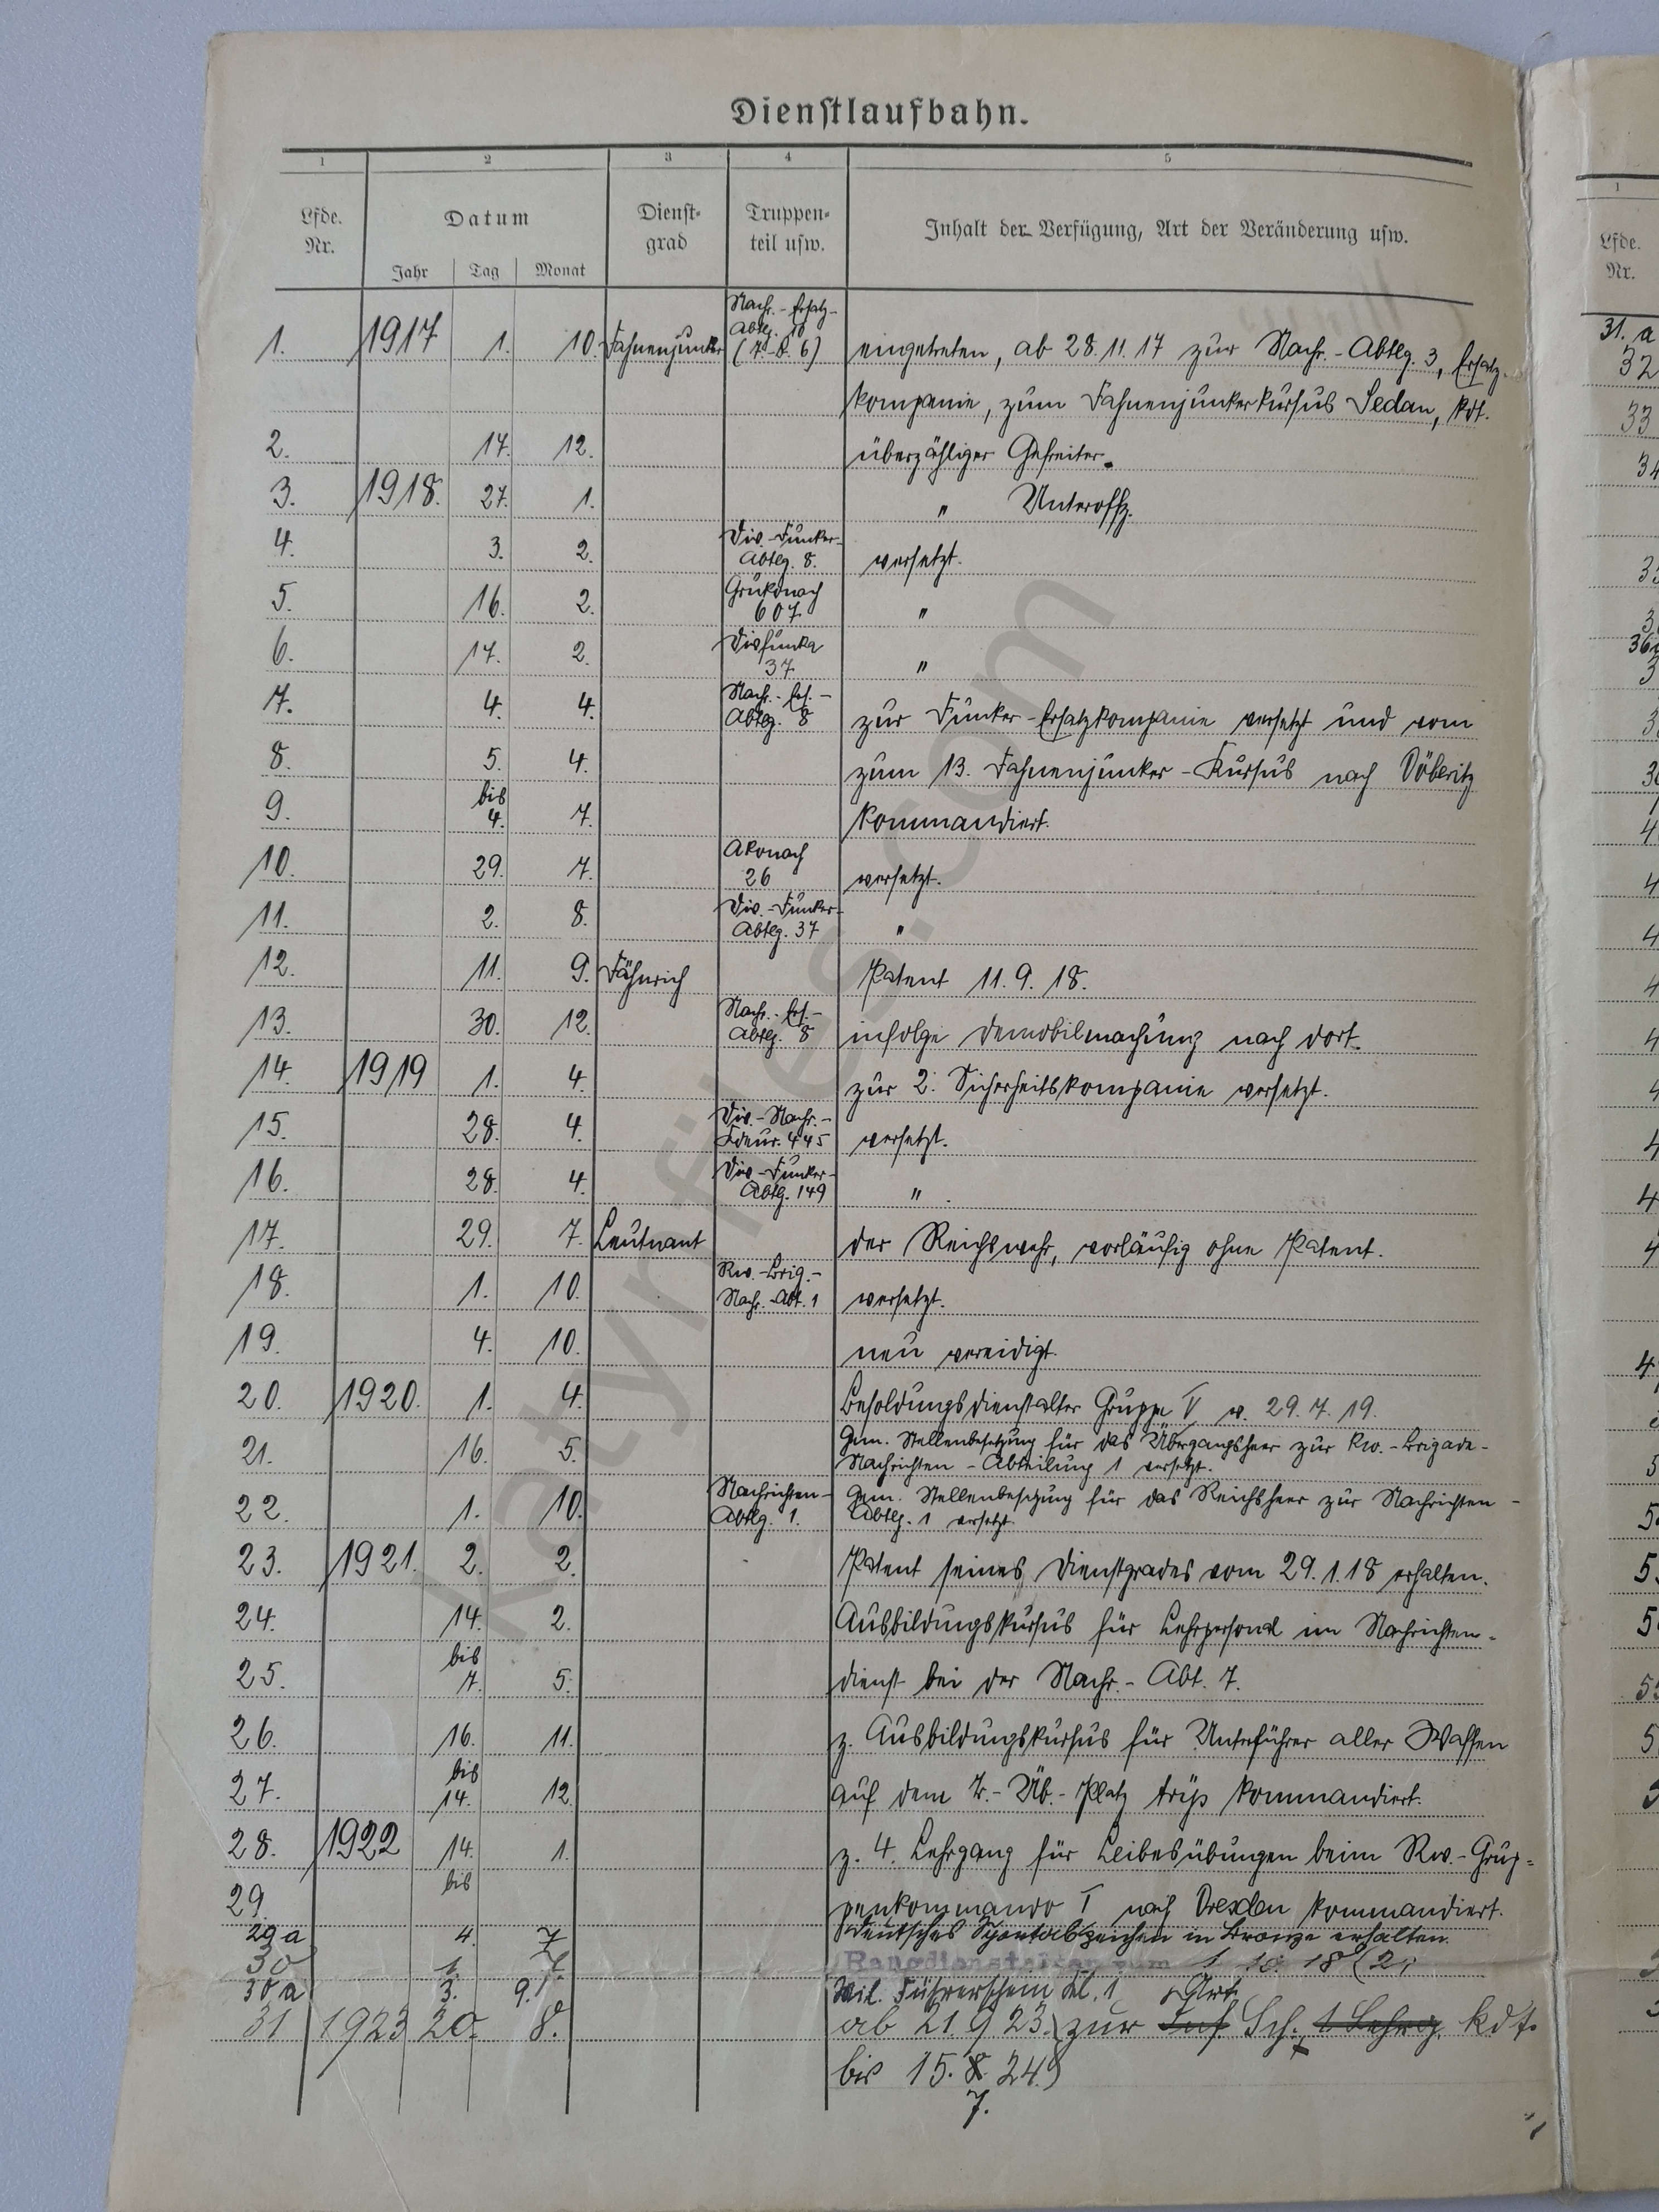 Dienstlaufbahn.
1 2 3 4 5
Lfde. Nr. Datum Dienst-grad Truppen-teil usw. Inhalt der Verfügung, Art der Veränderung usw.
Jahr Tag Monat
Nachr.-Ersatz-
Abtlg. 18
1. 1917 1. 10. Fahnenjunker eingetreten, ab 28.11.17 zur Nachr.-Abtlg. 3, Ersatz-
kompanie, zum Fahnenjunkerkursus Sedan, kdt.
2. 17. 12. überzähliger Gefreiter.
3. 1918. 27. 1. " Unteroffz.
4. 3. 2. Div.-Funker-Abtlg. 8. versetzt.
5. 16. 2. Grukonach 607 "
6. 17. 2. Divfunka 37. "
7. 4. 4. Nachr.-Ers.-Abtlg. 8 zur Funker-Ersatzkompanie versetzt und vom
8. 5. 4. zum 13. Fahnenjunker-Kursus nach Döberitz
bis
9. 4. 7. kommandiert.
10. 29. 7. Akonach 26 versetzt.
11. 2. 8. Div.-Funker-Abtlg. 37 "
12. 11. 9. Fähnrich Patent 11.9.18.
13. 30. 12. Nachr.-Ers.-Abtlg. 8 infolge Demobilmachung nach dort.
14. 1919 1. 4. zur 2. Sicherheitskompanie versetzt.
15. 28. 4. Div.-Nachr.-Kdeur. 445 versetzt.
16. 28. 4. Div-Funker-Abtlg. 149 "
17. 29. 7. Leutnant der Reichswehr, vorläufig ohne Patent.
18. 1. 10. Rw.-Brig.-Nachr.-Abt. 1 versetzt.
19. 4. 10. neu vereidigt.
20. 1920. 1. 4. Besoldungsdienstalter Gruppe V v. 29.7.19.
21. 16. 5. Gem. Stellenbesetzung für das Übergangsheer zur Rw.-Brigade-
Nachrichten-Abteilung 1 versetzt.
22. 1. 10. Nachrichten-Abtlg. 1. Gem. Stellenbesetzung für das Reichsheer zur Nachrichten-
Abtlg. 1 versetzt.
23. 1921. 2. 2. Patent seines Dienstgrades vom 29.1.18 erhalten.
24. 14. 2. Ausbildungskursus für Lehrpersonal im Nachrichten-
bis
25. 7. 5. dienst bei der Nachr.-Abt. 7.
26. 16. 11. z. Ausbildungskursus für Unterführer aller Waffen
bis
27. 14. 12. auf dem Tr.-Üb.-Platz Arys kommandiert.
28. 1922 14. 1. z. 4. Lehrgang für Leibesübungen beim Rw.-Grup-
bis
29. penkommando I nach Dresden kommandiert.
29a 4. 7. Deutsches Sportabzeichen in Bronze erhalten.
30 Rangdienstalter vom
30a 3. 9. Mil. Führerschein Kl. 1
Art.
31 1923 20. 8. ab 21.9.23. zur Inf. Sch. 1 Lehrg. kdt.
bis 15. 8. 24.
7.
1
Lfde.
Nr.
31. a
32
33
katynfiles.com